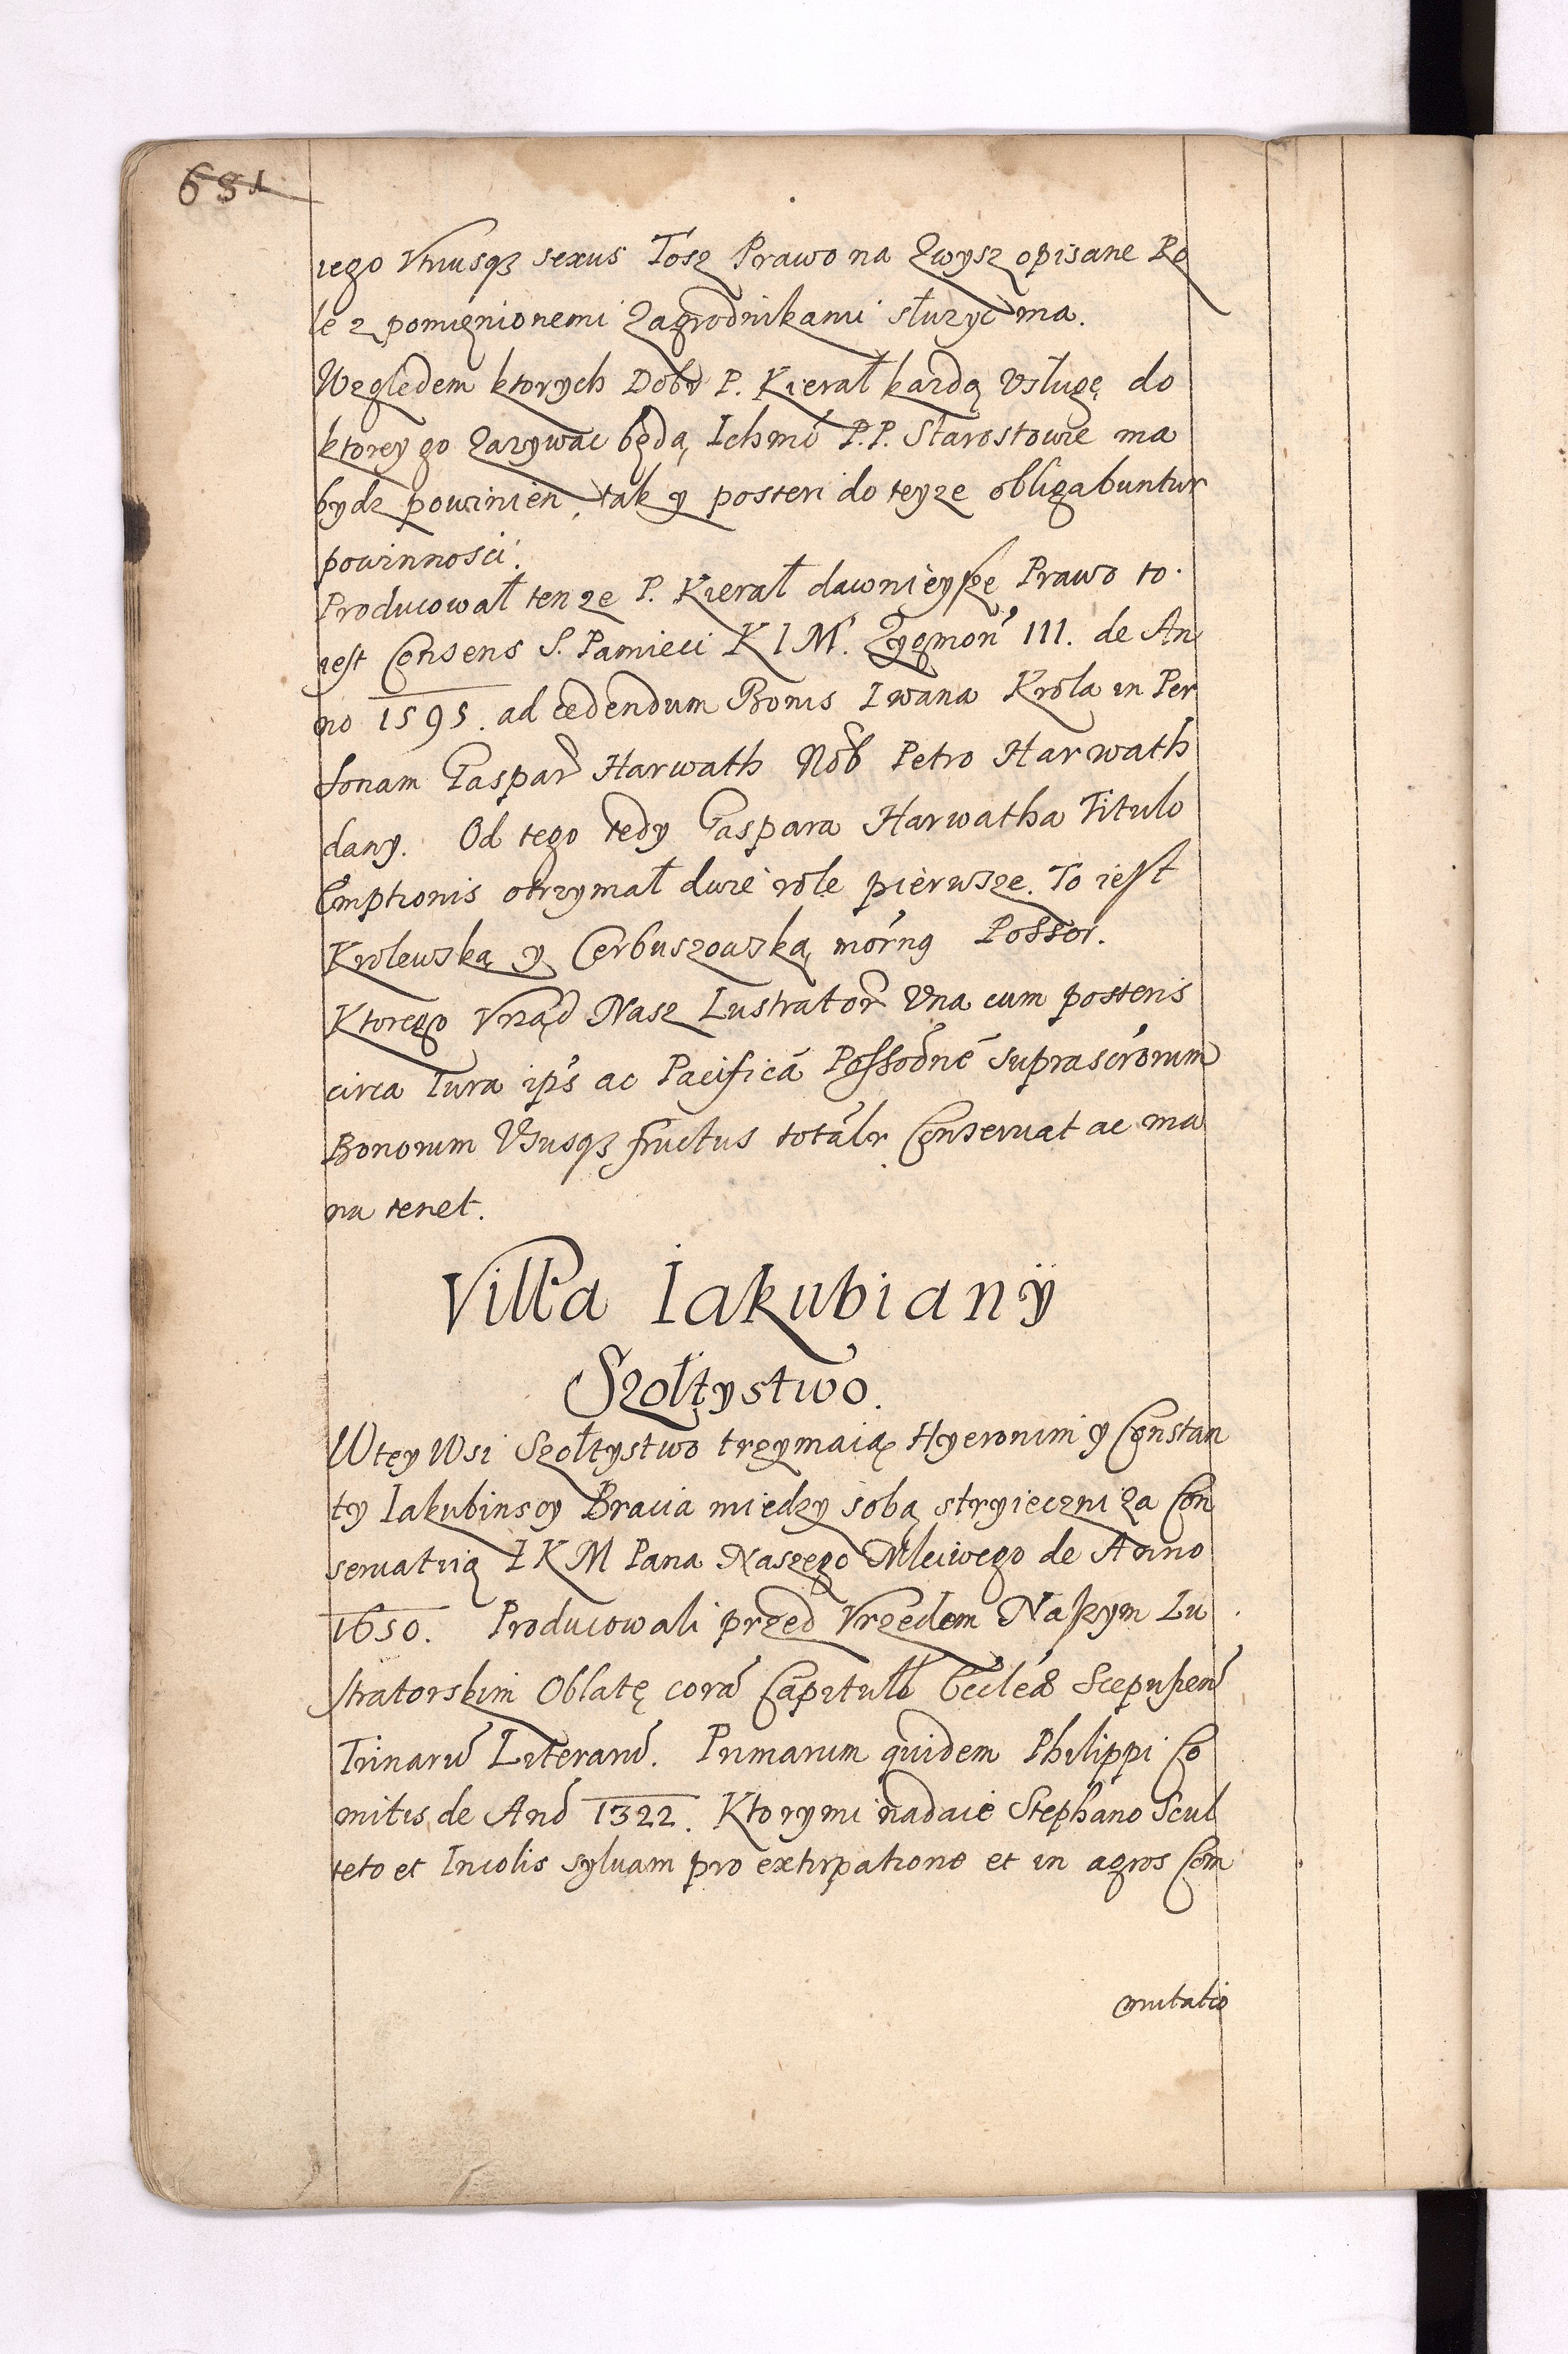 631
iego Vtriusqꝫ sexus Tosz Prawo na Zwysz opisane Ro
le z pomięnionemi Zagrodnikami słuzyc ma.
Względem ktorych Dobr P. Kierał kazdą Vsługę do
ktorey go Zazywac będą Ichmć P.P. Starostowie ma
bydz powinien, tak y posteri do teyze obligabuntur
powinnosci.
Producował tenze P. Kierał dawnieysze Prawo to
iest Consens S. Pamieci K I M. Zygmon III. de An
no 1595. ad cedendum Bonis Iwana Krola in Per
sonam Gaspar Harwath Nob Petro Harwath
dany. Od tego tedy Gaspara Harwatha Titulo
Emptionis otrzymał dwie role pierwsze. To iest
Krolewską y Cerbuszowską Possor.
Ktorego Vrząd Nasz Lustrator Vna cum posteris
circa Iura ips ac Pacificā Possoꝛnē suprascrorum
Bonorum Vsusqꝫ fructus totalr Conseruat ac ma
nu tenet.
Villa Iakubianÿ
Szołtystwo.
W tey Wsi Szołtystwo trzymaią Hyeronim y Constan
ty Iakubinscy Bracia miedzy sobą stryieczni za Con
seruatią I K M Pana Naszego Mlciwego de Anno
1650. Producowali przed Vrzędem Naszym Lu
stratorskim Oblatę cora Capitulo Eccleæ Scepusien
Trinaru Literaru. Primarum quidem Philippi Co
mitis de Ano 1322. Ktorymi nadaie Stephano Scul
teto et Incolis syluam pro extirpatione et in agros Com
mutatio